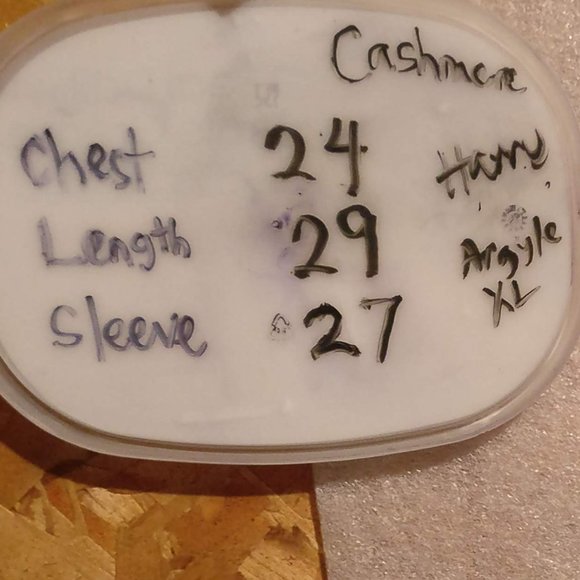 Cashmere
Chest 24
Length 29
Argyle
Sleeve 27
XL